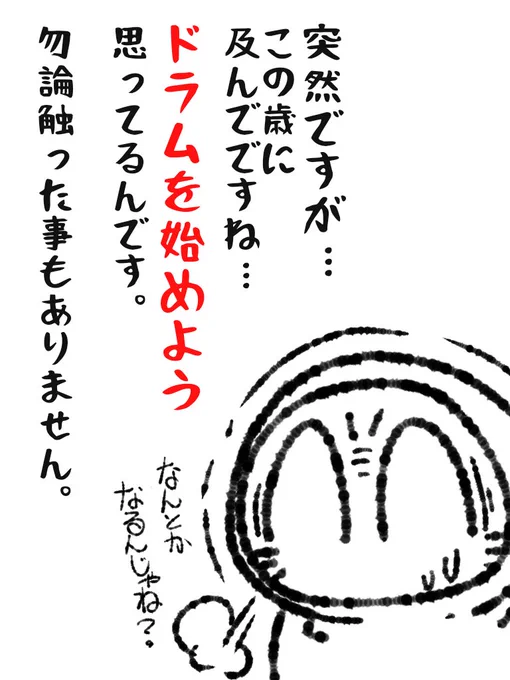 突然ですが…
この歳に
及んでですね…
ドラムを始めよう
思ってるんです。
勿論触った事もありません。
なんとか
なるんじゃね?。